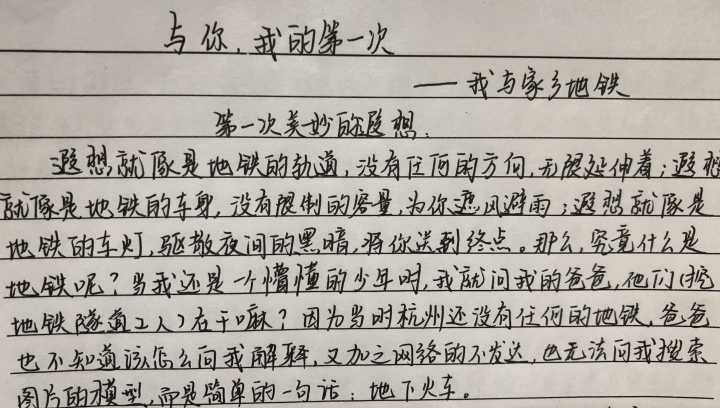 与你,我的第一次
——我与家乡地铁
第一次美妙的遐想.
遐想就像是地铁的轨道,没有任何的方向,无限延伸着;遐想
就像是地铁的车身,没有限制的容量,为你遮风避雨;遐想就像是
地铁的车灯,驱散夜间的黑暗,将你送到终点。那么,究竟什么是
地铁呢?当我还是一个懵懂的少年时,我就问我的爸爸,他们(挖
地铁隧道工人)在干嘛?因为当时杭州还没有任何的地铁,爸爸
也不知道该怎么向我解释,又加之网络的不发达,也无法向我搜索
图片的模型,而是简单的一句话:地下火车。